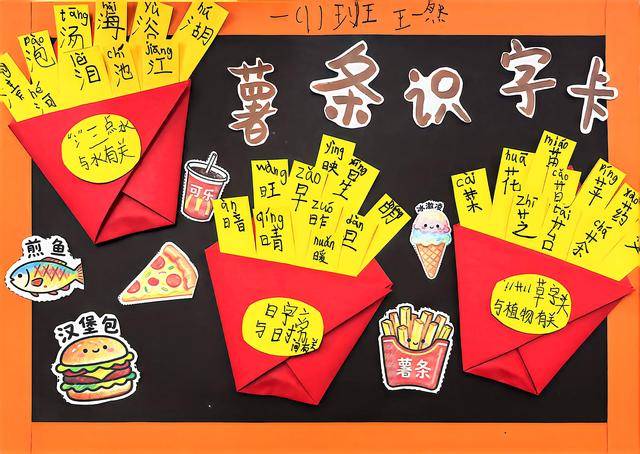 一(1)班 王一然
薯条识字卡
tāng
汤
hǎi
海
yù
浴
hú
湖
pào
泡
泪
chí
池
jiāng
江
hé
河
"氵"三点水
与水有关
可乐
煎鱼
汉堡包
wàng
旺
zǎo
早
yìng
映
星
暗
qíng
晴
zuó
昨
nuǎn
暖
dàn
旦
明
日字旁
与时间有关
冰激凌
薯条
cài
菜
huā
花
miáo
苗
cǎo
草
píng
苹
yào
药
zhī
芝
tái
苔
chá
茶
"艹"草字头
与植物有关